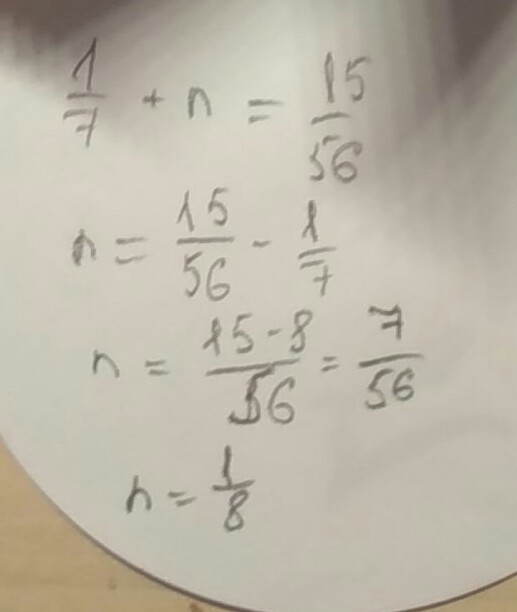 1/7 + n = 15/56
n = 15/56 - 1/7
n = 15-8/56 = 7/56
n = 1/8